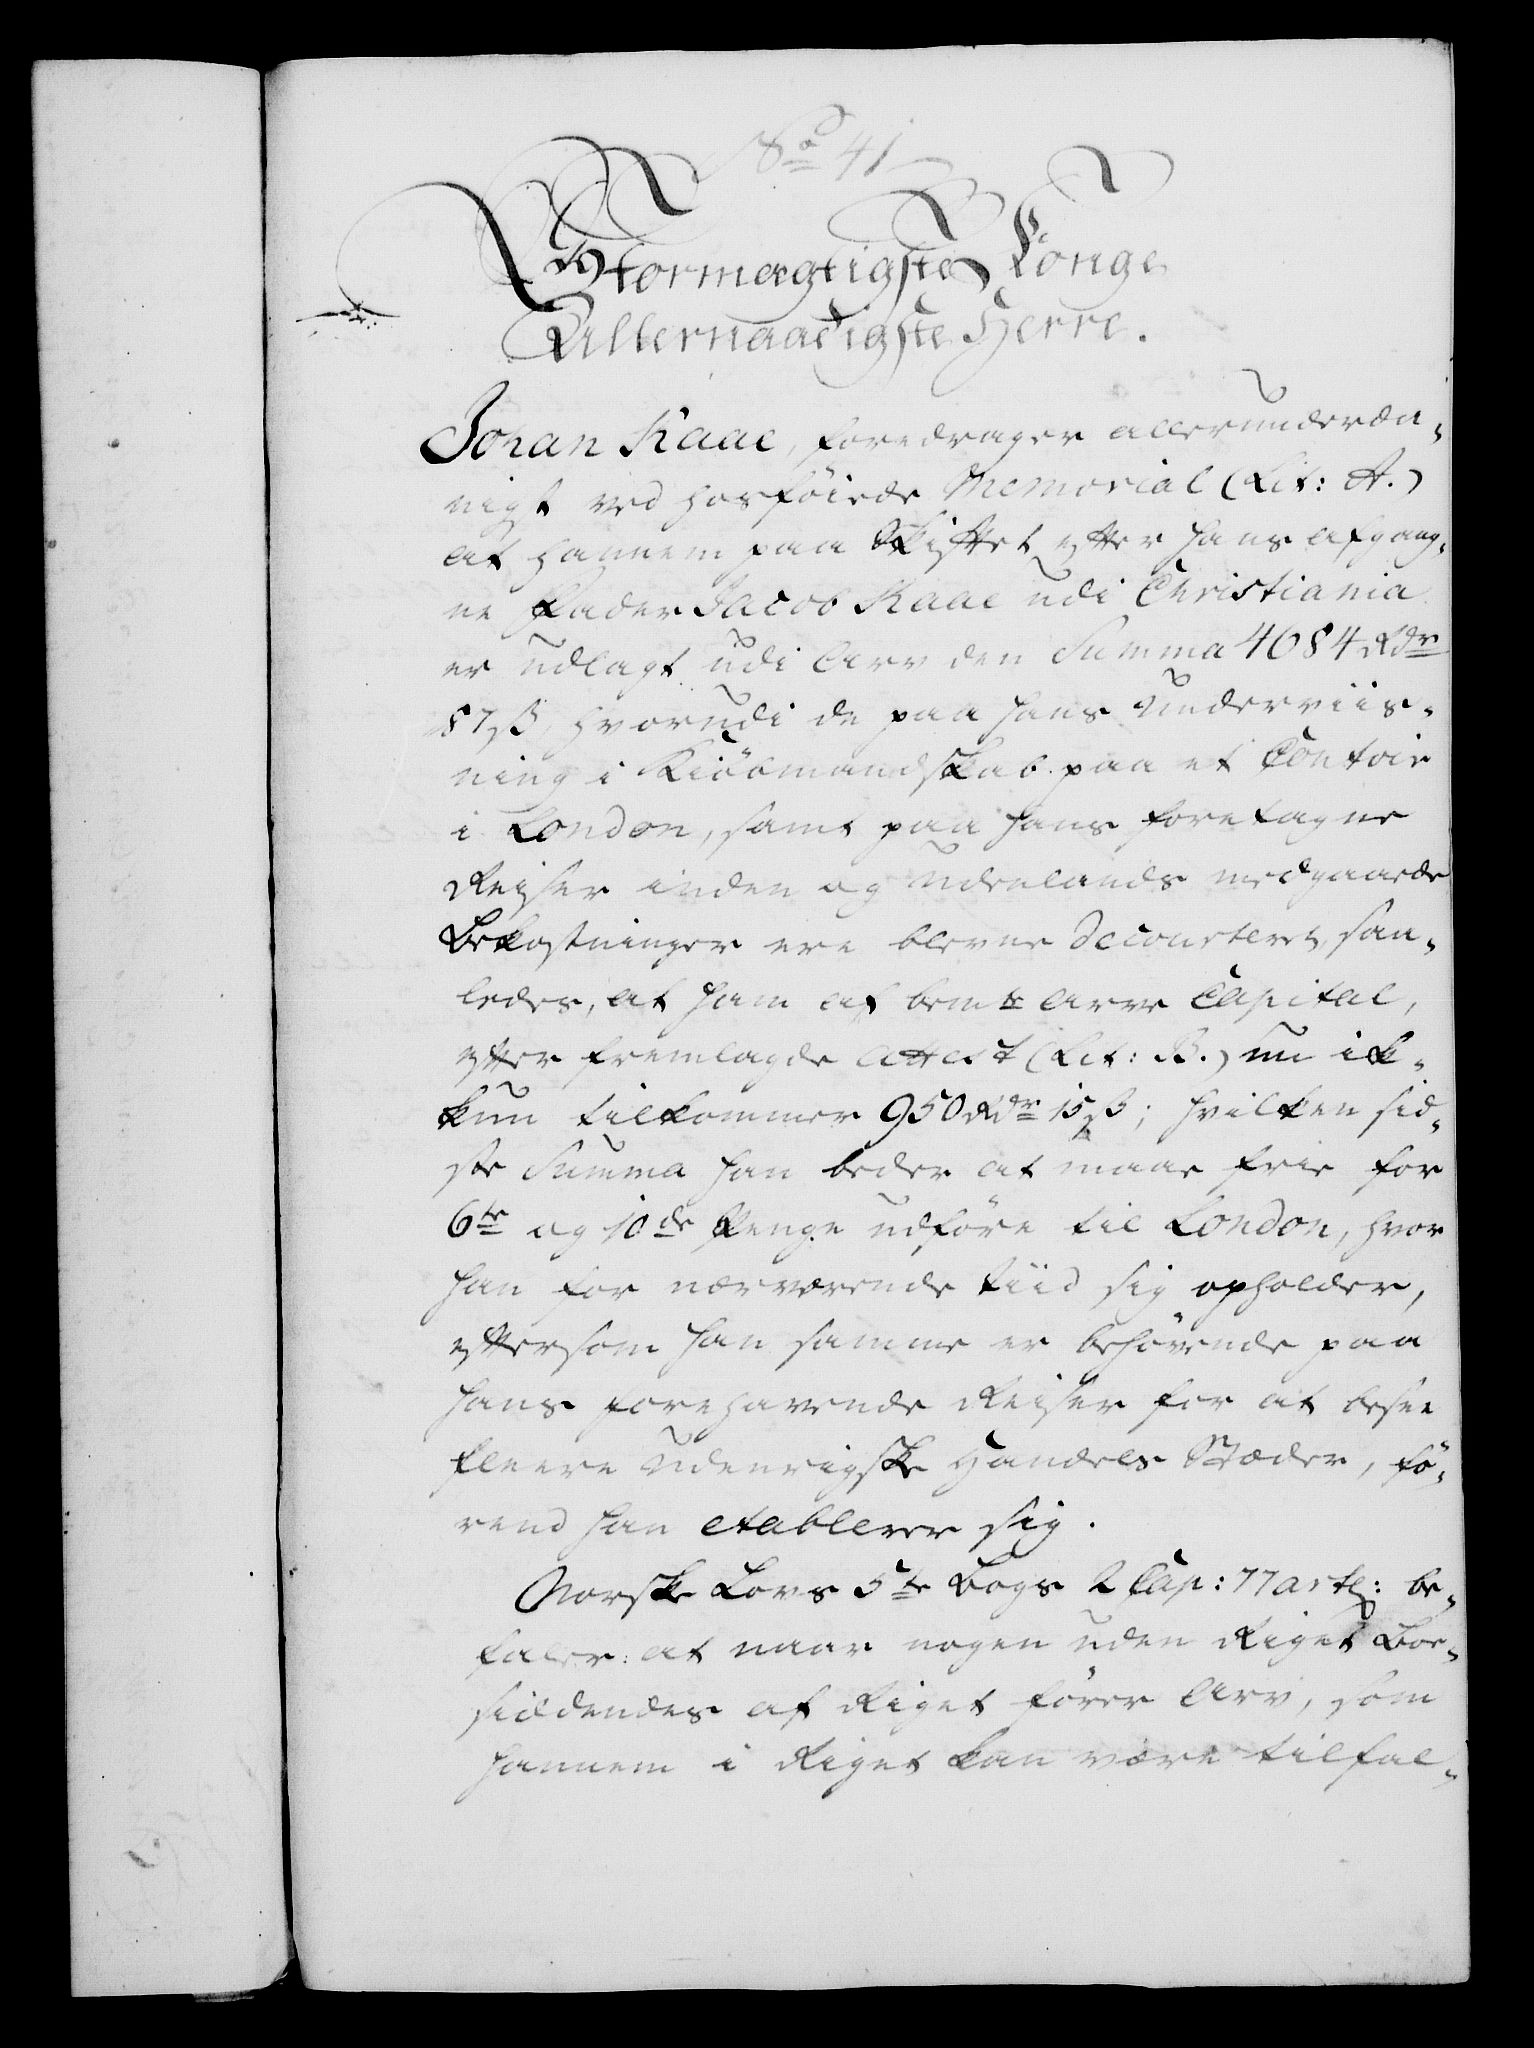 No 41
Stormægtigste Konge
Allernaadigste Herre.
Johan Kaae, foredrager allerunderda-
nigst ved hosföiede Memorial (Lit: A.)
at hannem paa Skiftet efter hans afgang-
ne Fader Jacob Kaae udi Christiania
er udlagt udi Arv den Summa 4684 Rdr
87 ß, hvorudi de paa hans Underviis-
ning i Kiöbmandskab paa et Contoir
i London, samt paa hans foretagne
Reiser inden og udenlands medgaaede
Bekostninger ere blevne decourteret, saa-
ledes, at ham af bemte Arve Capital,
efter fremlagde Attest (Lit: B.) nu ik-
kun tilkommer 950 Rdr 15 ß; hvilken sid-
ste Summa han beder at maae frie for
6te og 10de Penge udföre til London, hvor
han for nærværende Tiid sig opholder,
eftersom han samme er behövende paa
hans forehavende Reiser for at besee
fleere Udenrigske Handels Stæder, fö-
rend han etablerer sig.
Norske Lovs 5te Bogs 2 Cap: 77 artl: be-
faler: at naar nogen uden Riget Boe-
siddendes af Riget förer Arv, som
hannem i Riget kan være tilfal-